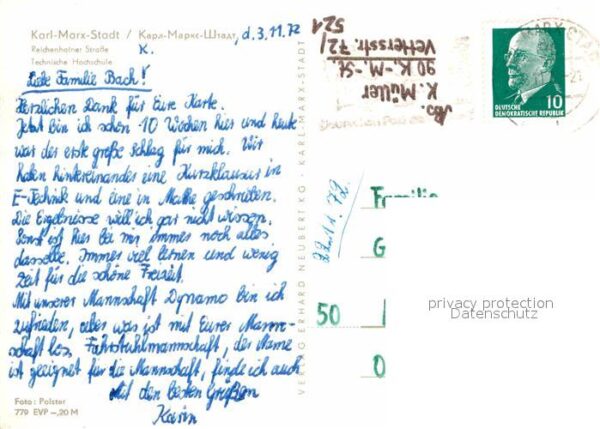 Karl-Marx-Stadt / Карл-Маркс-Штадт, d. 3.11.72
Reichenhainer Straße K.
Technische Hochschule
Liebe Familie Bach!
Herzlichen Dank für Eure Karte.
Jetzt bin ich schon 10 Wochen hier und heute
war der erste große Schlag für mich. Wir
haben hintereinander eine Kurzklausur in
E-Technik und eine in Mathe geschrieben.
Die Ergebnisse will ich gar nicht wissen.
Sonst ist hier bei mir immer noch alles
dasselbe. Immer viel lernen und wenig
Zeit für die schöne Freizeit.
Mit unserer Mannschaft Dynamo bin ich
zufrieden, aber was ist mit Eurer Mann-
schaft los, Fahrstuhlmannschaft, der Name
ist geeignet für die Mannschaft, finde ich auch
Mit den besten Grüßen
Karin
Foto: Polster
779 EVP -,20 M
VERLAG ERHARD NEUBERT KG · KARL-MARX-STADT
Abs.
K. Müller
90 K.-M.-St.
Vettersstr. 72/
521
DEUTSCHE
DEMOKRATISCHE REPUBLIK
10
22.11.72
Familie
G
50
O
privacy protection
Datenschutz